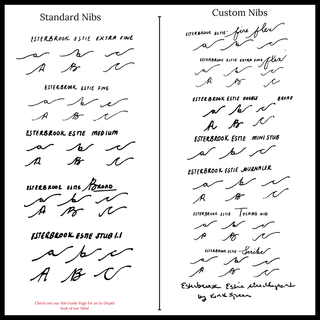 Standard Nibs
ESTERBROOK ESTIE EXTRA FINE
a b c
A B C
ESTERBROOK ESTIE FINE
a b c
A B C
ESTERBROOK ESTIE MEDIUM
a b c
A B C
ESTERBROOK ESTIE BROAD
a b c
A B C
ESTERBROOK ESTIE STUB 1.1
a b c
A B C
Check out our Nib Guide Page for an In-Depth
look of our Nibs!
Custom Nibs
ESTERBROOK ESTIE fine flex
a b c
A B C
ESTERBROOK ESTIE EXTRA FINE flex
a b c
A B C
ESTERBROOK ESTIE DOUBLE BROAD
a b c
A B C
ESTERBROOK ESTIE MINI STUB
a b c
A B C
ESTERBROOK ESTIE JOURNALER
a b c
A B C
ESTERBROOK ESTIE TECHNO NIB
a b c
A B C
ESTERBROOK ESTIE Scribe
a b c
A B C
Esterbrook Estie Needlepoint
by Kirk Speer